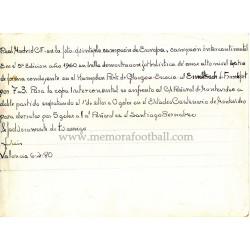 Real Madrid C.F. en la foto, quintuple campeon de Europa, campeon intercontinental
En el 5º edicion año 1960 en bella demostracion futbolistica de once alto nivel
de forma concluyente en el Hampden Park de Glasgow Escocia al Eintracht de Frankfurt
por 7-3. Para la copa Intercontinental se enfrento al C.A. Peñarol de Montevideo a
doble partido empatando el 1º de ellos a 0 goles en el Estadio Centenario de Montevideo
para derrotar por 5 goles a 1 al Peñarol en el Santiago Bernabeu
tu amigo
Luis
Valencia 6-2-80
www.memorafootball.com